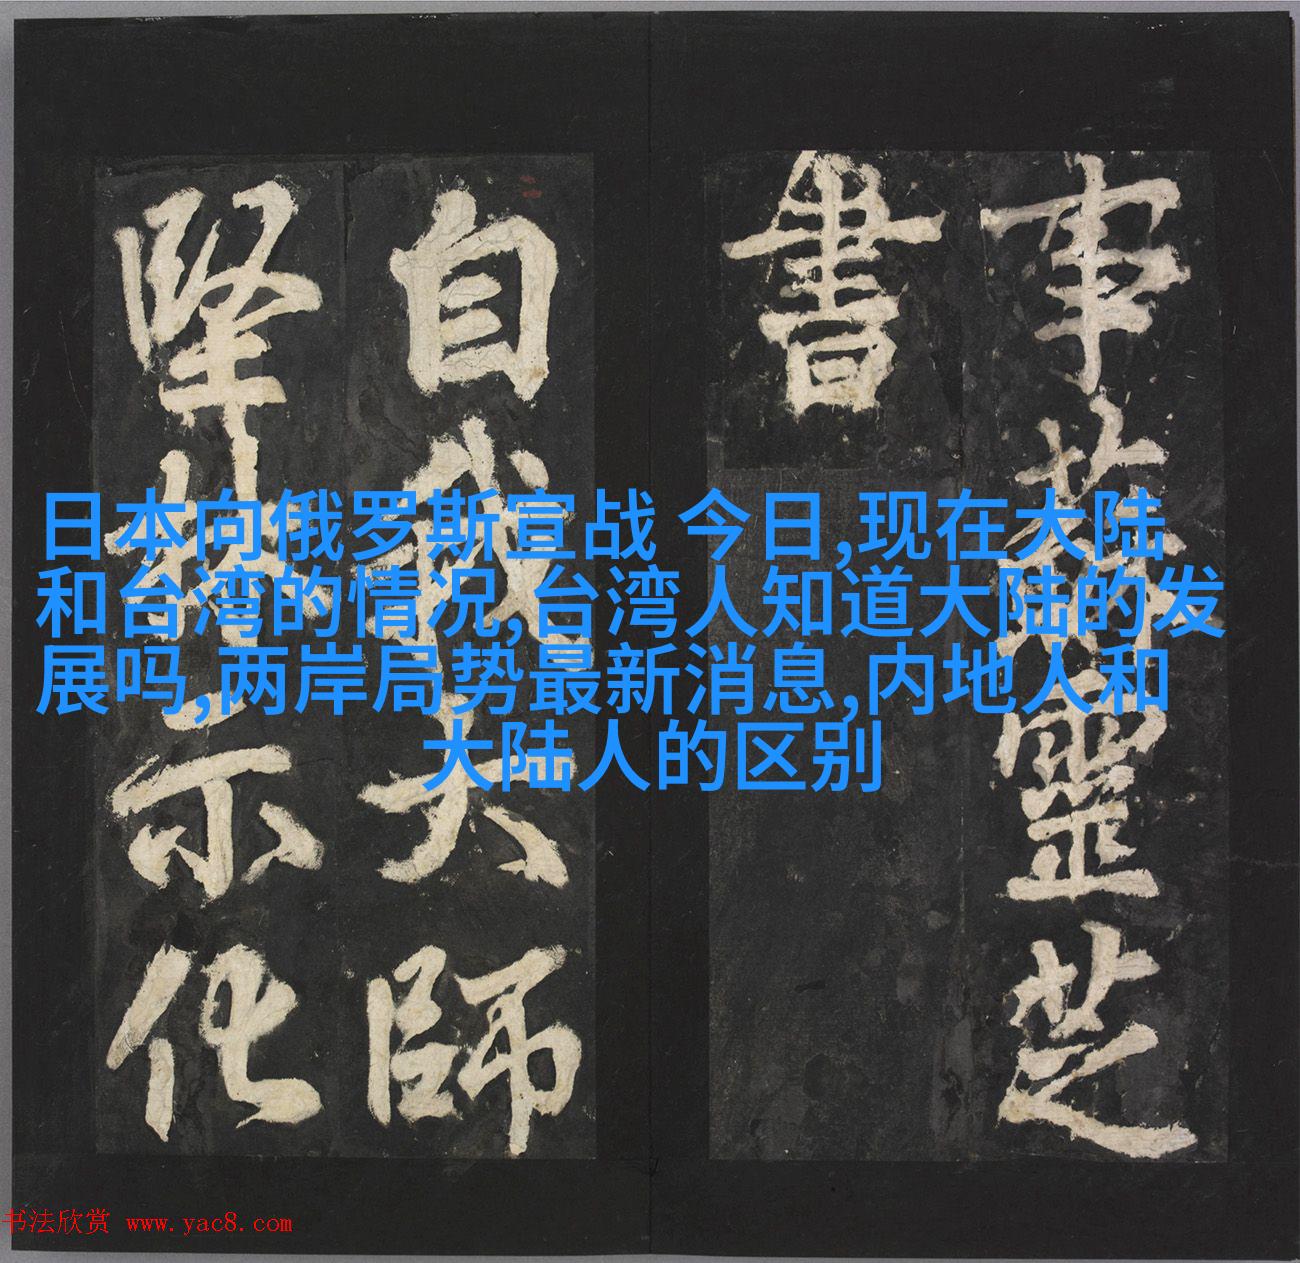 事蘇靈芝
書
自我大師
堅林示化
日本向俄罗斯宣战 今日,现在大陆
和台湾的情况,台湾人知道大陆的发
展吗,两岸局势最新消息,内地人和
大陆人的区别
书法欣赏 www.yac8.com